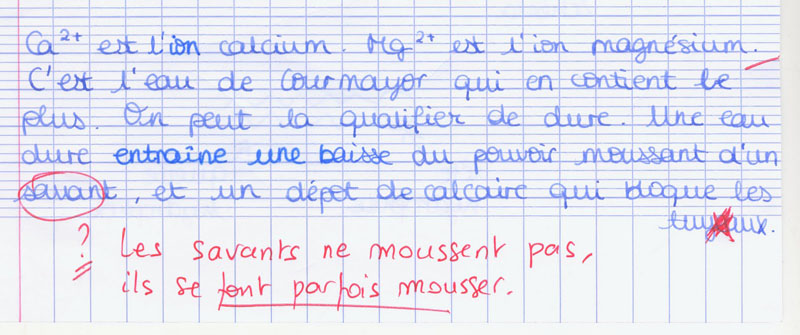 Ca²⁺ est l'ion calcium. Mg²⁺ est l'ion magnésium.
C'est l'eau de Courmayor qui en contient le
plus. On peut la qualifier de dure. Une eau
dure entraîne une baisse du pouvoir moussant d'un
savant, et un dépot de calcaire qui bloque les
tuyaux.
? Les savants ne moussent pas,
ils se font parfois mousser.